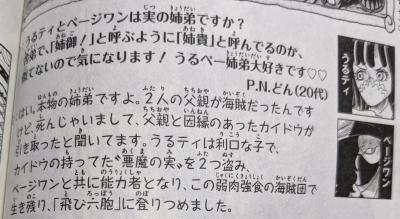 うるティとページワンは実の姉弟ですか?
弟で、「姉御!」と呼ぶように「姉貴」と呼んでるのか、
似てないので気になります! うるペー姉弟大好きです♡♡
P.N.どん(20代)
はい。本物の姉弟ですよ。2人の父親が海賊だったんです
けど、死んじゃいまして、父親と因縁のあったカイドウが
引き取ったと聞いてます。うるティは利口な子で、
カイドウの持ってた〝悪魔の実〟を2つ盗み、
ページワンと共に能力者となり、この弱肉強食の海賊団で
生き残り、「飛び六胞」に登りつめました。
うるティ
ページワン